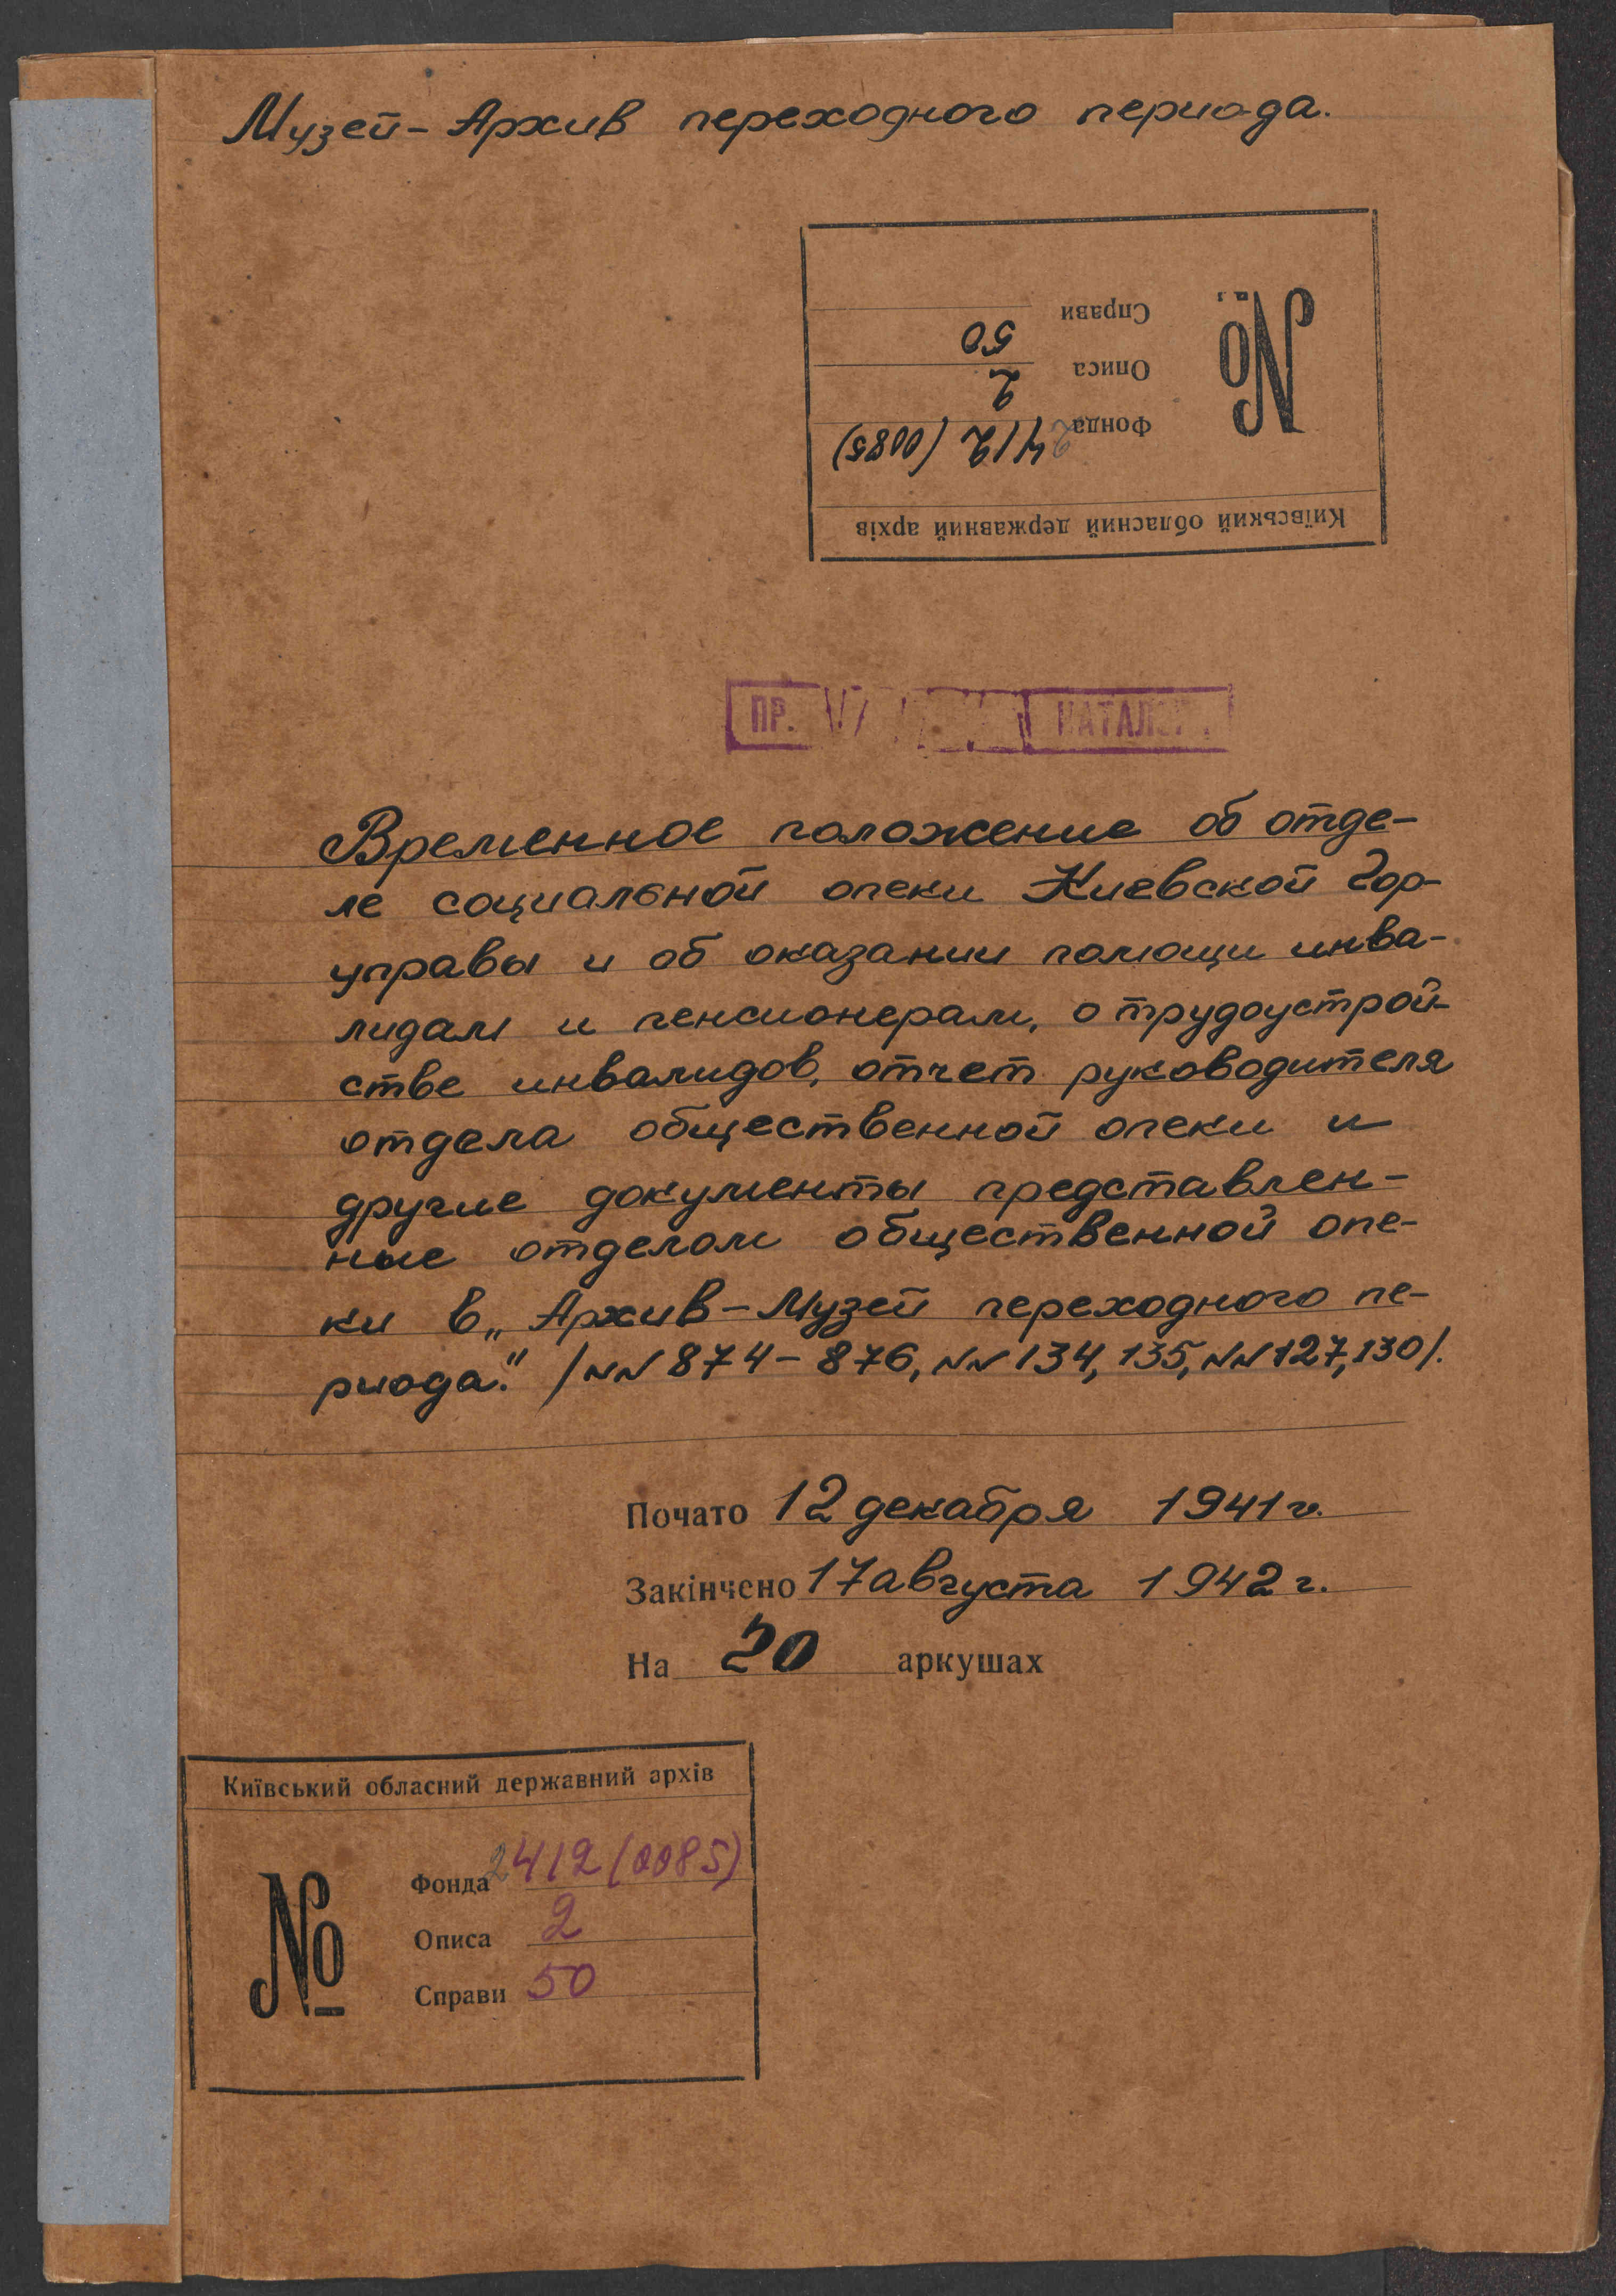 Музей-Архив переходного периода.
Київський обласний державний архів
№
Фонда 2412 (0085)
Описа 2
Справи 50
ПР. КАТАЛОГ
Временное положение об отде-
ле социальной опеки Киевской Гор-
управы и об оказании помощи инва-
лидам и пенсионерам, о трудоустрой-
стве инвалидов, отчет руководителя
отдела общественной опеки и
другие документы представлен-
ные отделом общественной опе-
ки в „Архив-Музей переходного пе-
риода." /NN 874-876, NN 134, 135, NN 127, 130/.
Почато 12 декабря 1941 г.
Закінчено 17 августа 1942 г.
На 20 аркушах
Київський обласний державний архів
№
Фонда 2412 (0085)
Описа 2
Справи 50